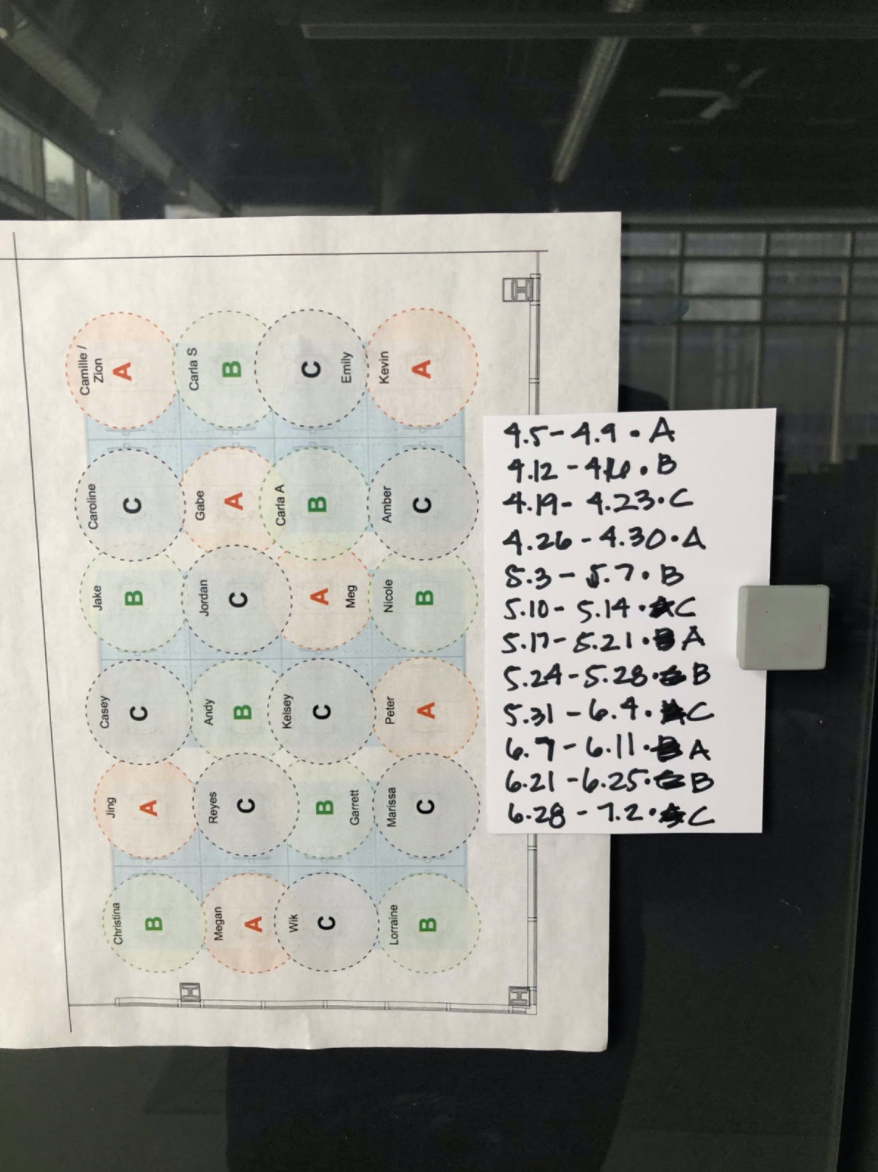 Camille /
Zion
A
Carla S
B
C
Emily
Kevin
A
Caroline
C
Gabe
A
Carla A
B
Amber
C
Jake
B
Jordan
C
A
Meg
Nicole
B
Casey
C
Andy
B
Kelsey
C
Peter
A
Jing
A
Reyes
C
B
Garrett
Marissa
C
Christina
B
Megan
A
Wik
C
Lorraine
B
4.5 - 4.9 • A
4.12 - 4.16 • B
4.19 - 4.23 • C
4.26 - 4.30 • A
5.3 - 5.7 • B
5.10 - 5.14 • C
5.17 - 5.21 • A
5.24 - 5.28 • B
5.31 - 6.4 • C
6.7 - 6.11 • A
6.21 - 6.25 • B
6.28 - 7.2 • C